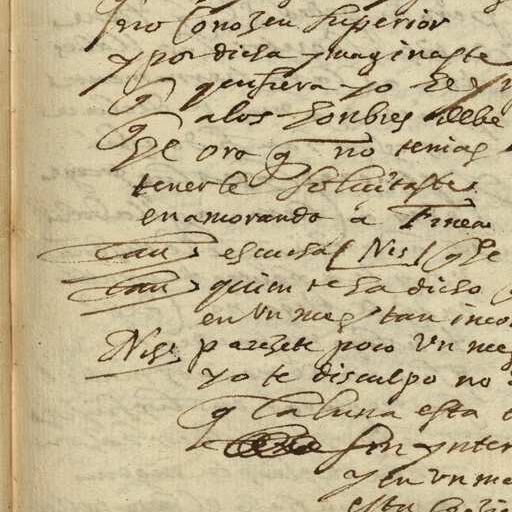 no Conozeu superior
y por dicha ymaginaste
q quisiera yo el
q a los honbres debe
el oro q no tenias
tenerle soliçitaste
enamorando a Finea
Lau escucha Nis q e
Lau quien te ha dicho
en Un mes tan inco
Nise parezete poco Un mes
yo te disculpo no
q la luna esta
sin ynter
y en Un me
esta